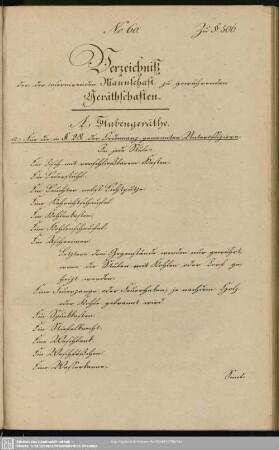 No. 60.
Zu § 506
Verzeichniß
der der casernirenden Mannschaft zu gewährenden
Geräthschaften.
A. Stubengeräthe.
a. Für die in § 28. der Ordonnanz genannten Unteroffiziere.
In jede Stube.
Ein Tisch mit verschließbarem Kasten.
Ein
Ein Leuchter nebst Lichtputze.
Eine Kehrichtschaufel.
Ein Kohlenkasten.
Eine Kohlenschaufel.
Ein Ascheimer.
Letztere drei Gegenstände werden nur gewährt,
wenn die Stuben mit Kohlen oder Torf ge-
heizt werden.
Eine Feuerzange oder Feuerhaken, je nachdem Holz
oder Kohle gebrannt wird
Ein Spucknapf.
Ein Stiefelknecht.
Eine Waschbank.
Ein Waschbecken.
Eine Wasserkanne.